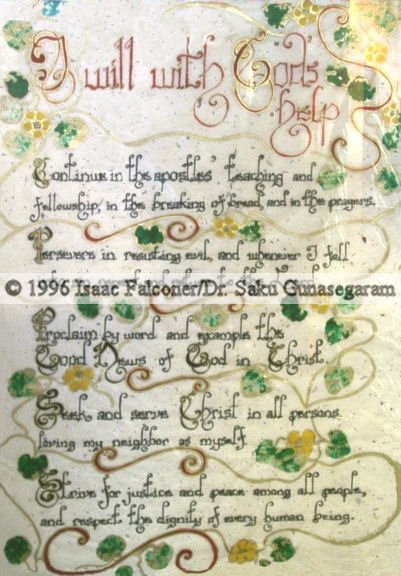 I will with God's
help
Continue in the apostles' teaching and
fellowship, in the breaking of bread, and in the prayers.
Persevere in resisting evil, and whenever I fall
© 1996 Isaac Falconer/Dr. Saku Gunasegaram
Proclaim by word and example the
Good News of God in Christ.
Seek and serve Christ in all persons
loving my neighbor as myself
Strive for justice and peace among all people,
and respect the dignity of every human being.